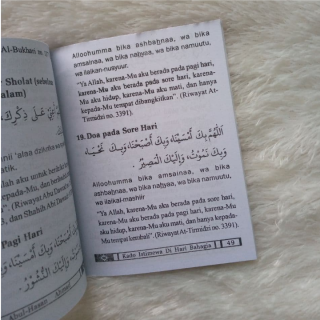 Al-Bukhari
Sholat
alam)
Pagi Hari
Alloohumma bika ashbahnaa, wa bika
amsainaa, wa bika nahyaa, wa bika namuutu,
wa ilaikan-nusyuur.
"Ya Allah, karena-Mu aku berada pada pagi hari,
karena-Mu aku berada pada sore hari, karena-
Mu aku hidup, karena-Mu aku mati, dan hanya
kepada-Mu tempat dibangkitkan". (Riwayat At-
Tirmidzi no. 3391).
19. Doa pada Sore Hari
اَللَّهُمَّ بِكَ أَمْسَيْنَا، وَبِكَ أَصْبَحْنَا، وَبِكَ نَحْيَا،
وَبِكَ نَمُوْتُ، وَإِلَيْكَ الْمَصِيْرُ.
Alloohumma bika amsainaa, wa bika
ashbahnaa, wa bika nahyaa, wa bika namuutu,
wa ilaikal-mashiir
"Ya Allah, karena-Mu aku berada pada sore hari,
karena-Mu aku berada pada pagi hari, karena-Mu
aku hidup, karena-Mu aku mati, dan hanya kepada-
Mu tempat kembali". (Riwayat At-Tirmidzi no. 3391).
Kado Istimewa Di Hari Bahagia
49